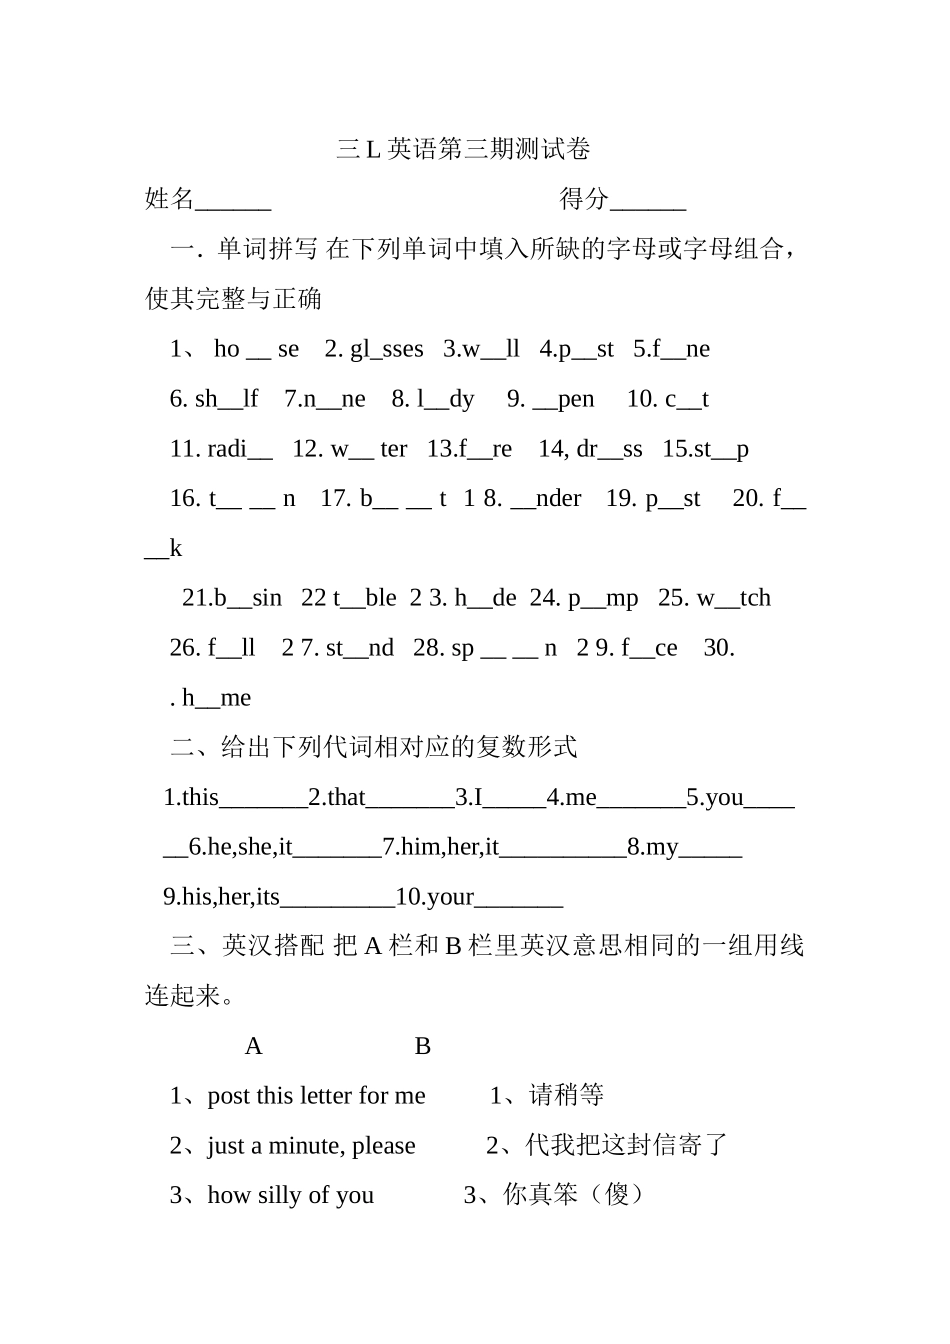 三 L 英语第三期测试卷
姓名______ 得分______
一．单词拼写 在下列单词中填入所缺的字母或字母组合，
使其完整与正确
1、 ho __ se 2. gl_sses 3.w__ll 4.p__st 5.f__ne
6. sh__lf 7.n__ne 8. l__dy 9. __pen 10. c__t
11. radi__ 12. w__ ter 13.f__re 14, dr__ss 15.st__p
16. t__ __ n 17. b__ __ t 1 8. __nder 19. p__st 20. f__
__k
21.b__sin 22 t__ble 2 3. h__de 24. p__mp 25. w__tch
26. f__ll 2 7. st__nd 28. sp __ __ n 2 9. f__ce 30.
. h__me
二、给出下列代词相对应的复数形式
1.this_______2.that_______3.I_____4.me_______5.you____
__6.he,she,it_______7.him,her,it__________8.my_____
9.his,her,its_________10.your_______
三、英汉搭配 把 A 栏和 B 栏里英汉意思相同的一组用线
连起来。
A B
1、post this letter for me 1、请稍等
2、just a minute, please 2、代我把这封信寄了
3、how silly of you 3、你真笨（傻）